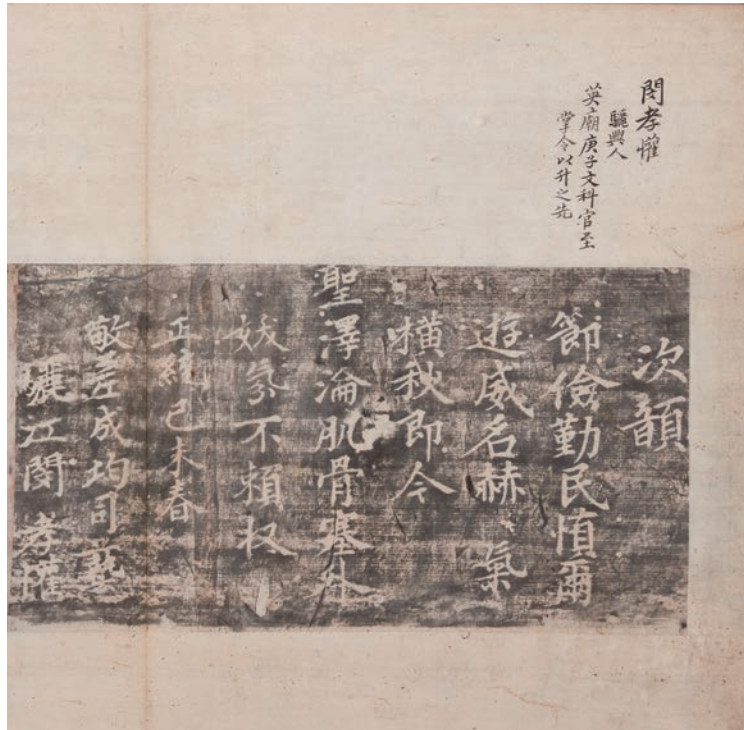 閔孝懽
驪興人
英廟庚子文科官至
掌令以升之先
次韻
節儉勤民愼爾
遊威名赫〻氣
橫秋即今
聖澤淪肌骨塞外
妖氛不頼収
正統己未春
敬差成均司藝
驪江閔孝懽